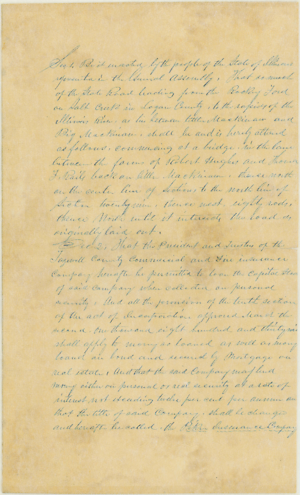 Sec 1 Be it enacted by the people of the State of Illinois
represented in the General Assembly. That so much
of the State Road leading from the Rocky Ford
on Salt Creek in Logan County, to the rapids of the
Illinois River as lies between little Mackinaw and
Big Mackinaw shall be and is hereby altered
as follows. commencing at a bridge in the lane
between the farms of Robert Murphy and
on little Mackinaw. thence north
on the centre line of Sections to the north line of
Section twenty one. thence east eighty rods.
thence North until it intersects the road as
originally laid out.
Sec 2 That the President and Directors of the
Tazewell County Commercial and Fire insurance
Company hereafter be permitted to loan the Capital Stock
of said company when collected on personal
security. And all the provisions of the tenth section
of the act of incorporation approved March the
second One thousand eight hundred and thirty nine
shall apply to money so loaned as well as money
loaned on bond and secured by Mortgage on
real estate. And that the said Company may lend
money either on personal or real security at a rate of
interest, not exceeding twelve per cent per annum and
that the title of said Company shall be changed
and hereafter be called the Pekin Insurance Company